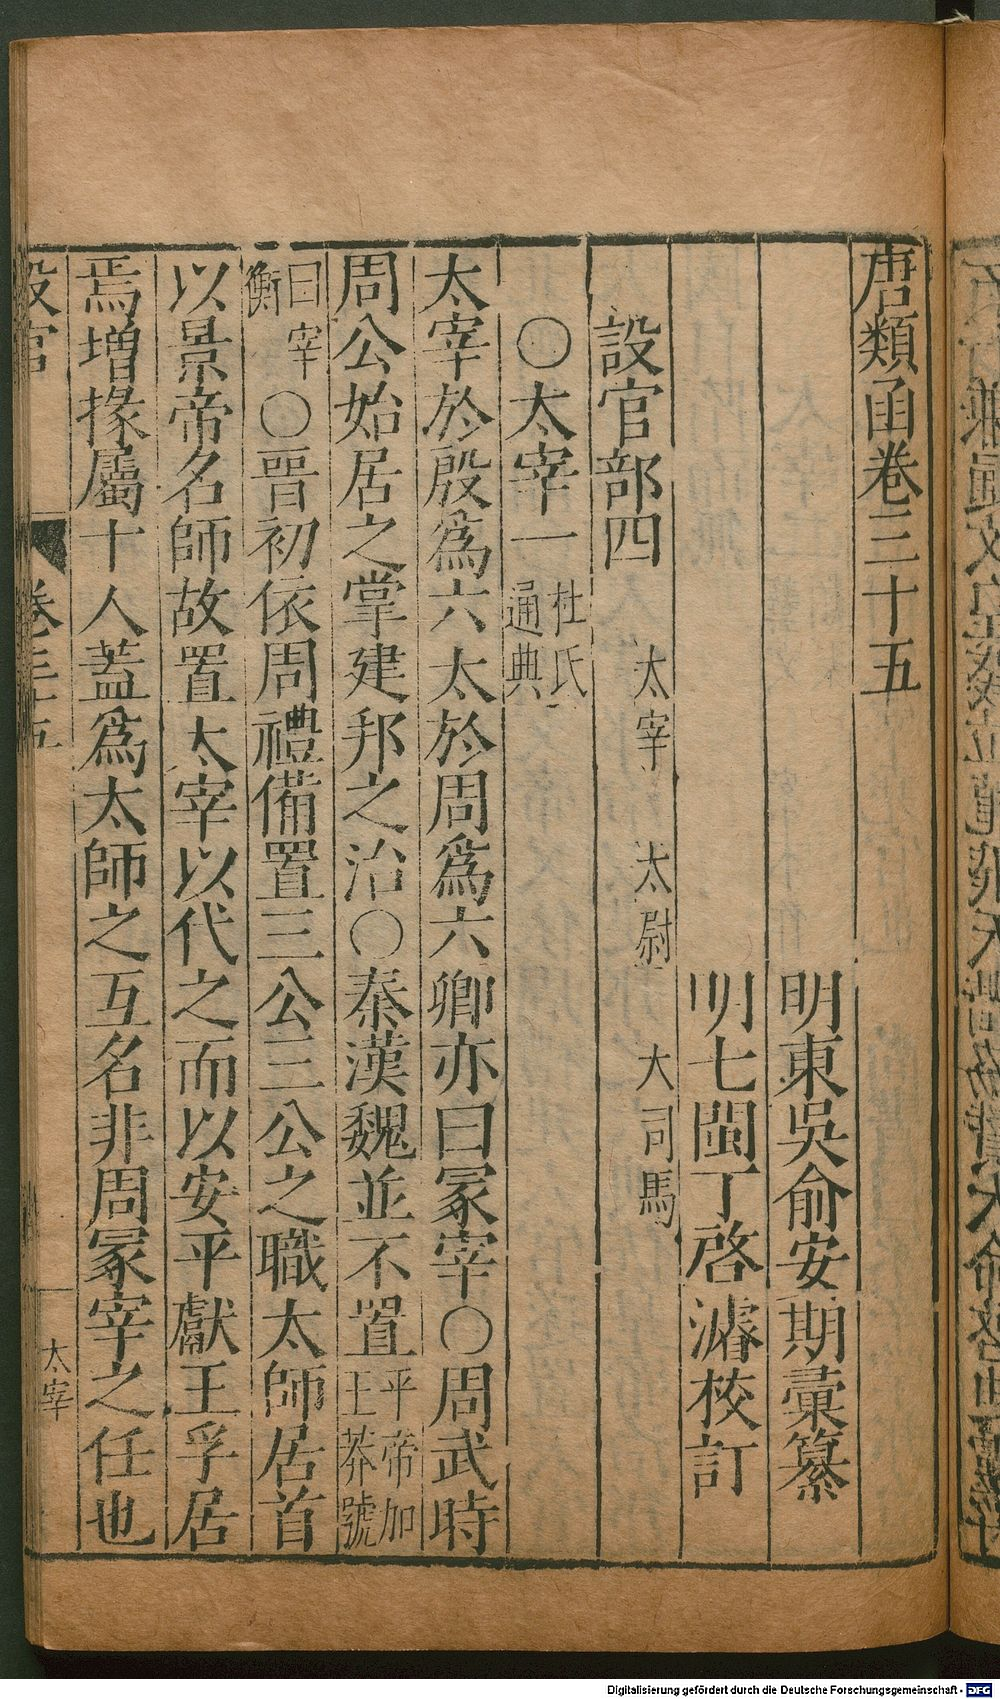 唐類函卷三十五
明東吳俞安期彙纂
明七閩丁啓濬校訂
設官部四　太宰　太尉　大司馬
〇太宰一　杜氏通典
太宰於殷爲六太於周爲六卿亦曰冢宰〇周武時
周公始居之掌建邦之治〇秦漢魏並不置平帝加王莽號
曰宰衡〇晉初依周禮備置三公三公之職太師居首
以景帝名師故置太宰以代之而以安平獻王孚居
焉增掾屬十人蓋爲太師之互名非周冢宰之任也
設官　卷三十五　太宰
Digitalisierung gefördert durch die Deutsche Forschungsgemeinschaft - DFG